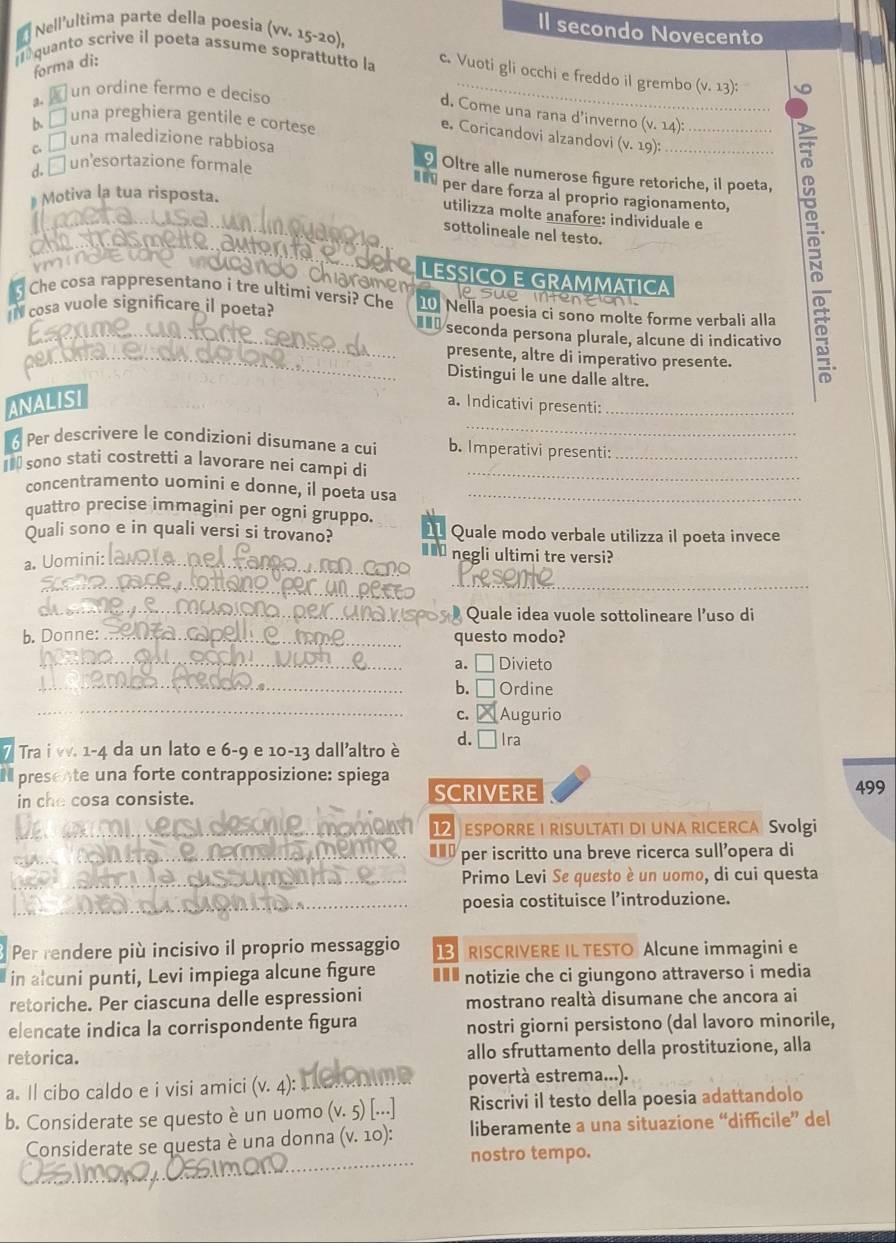 Il secondo Novecento
4 Nell'ultima parte della poesia (vv. 15-20),
quanto scrive il poeta assume soprattutto la
forma di:
a. un ordine fermo e deciso
b. una preghiera gentile e cortese
c. una maledizione rabbiosa
d. un'esortazione formale
Motiva la tua risposta.
Il poeta usa un linguaggio
che trasmette autorità e dete
rminazione indicando chiaramente
le sue intenzioni.
5 Che cosa rappresentano i tre ultimi versi? Che
cosa vuole significare il poeta?
Esprime un forte senso di
perdita e di dolore.
ANALISI
6 Per descrivere le condizioni disumane a cui
sono stati costretti a lavorare nei campi di
concentramento uomini e donne, il poeta usa
quattro precise immagini per ogni gruppo.
Quali sono e in quali versi si trovano?
a. Uomini: lavora nel fango, non cono
scono pace, lottano per un pezzo
di pane, e muoiono per una risposta
b. Donne: Senza capelli e nome
hanno gli occhi vuoti e
il grembo freddo.
7 Tra i vv. 1-4 da un lato e 6-9 e 10-13 dall'altro è
presente una forte contrapposizione: spiega
in che cosa consiste.
versi descrive momenti
e normalità, mentre
altri la disumanità e
senza di dignità.
8 Per rendere più incisivo il proprio messaggio
in alcuni punti, Levi impiega alcune figure
retoriche. Per ciascuna delle espressioni
elencate indica la corrispondente figura
retorica.
a. Il cibo caldo e i visi amici (v. 4): Metonimia
b. Considerate se questo è un uomo (v. 5) [...]
Considerate se questa è una donna (v. 10):
Ossimoro, Ossimoro
c. Vuoti gli occhi e freddo il grembo (v. 13):
d. Come una rana d'inverno (v. 14):
e. Coricandovi alzandovi (v. 19):
9 Oltre alle numerose figure retoriche, il poeta,
per dare forza al proprio ragionamento,
utilizza molte anafore: individuale e
sottolineale nel testo.
LESSICO E GRAMMATICA
10 Nella poesia ci sono molte forme verbali alla
seconda persona plurale, alcune di indicativo
presente, altre di imperativo presente.
Distingui le une dalle altre.
a. Indicativi presenti:
b. Imperativi presenti:
11 Quale modo verbale utilizza il poeta invece
negli ultimi tre versi?
Presente
Quale idea vuole sottolineare l'uso di
questo modo?
a. Divieto
b. Ordine
c. Augurio
d. Ira
SCRIVERE
12 ESPORRE I RISULTATI DI UNA RICERCA Svolgi
per iscritto una breve ricerca sull'opera di
Primo Levi Se questo è un uomo, di cui questa
poesia costituisce l'introduzione.
13 RISCRIVERE IL TESTO Alcune immagini e
notizie che ci giungono attraverso i media
mostrano realtà disumane che ancora ai
nostri giorni persistono (dal lavoro minorile,
allo sfruttamento della prostituzione, alla
povertà estrema...).
Riscrivi il testo della poesia adattandolo
liberamente a una situazione "difficile" del
nostro tempo.
9 Altre esperienze letterarie
499